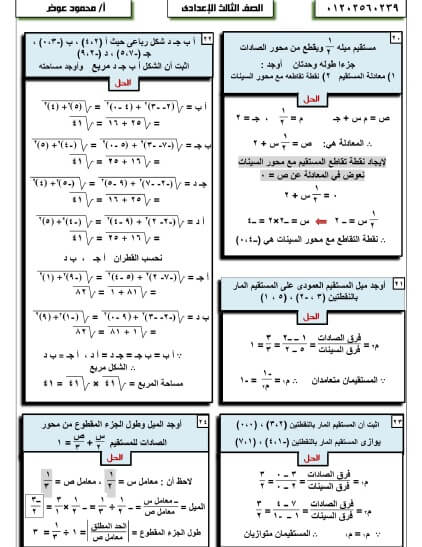 أ/ محمود عوض
الصف الثالث الإعدادى
٠١٢٠٢٥٦٠٢٣٩
٢٠
مستقيم ميله ١/٢ ويقطع من محور الصادات
جزءا طوله وحدتان أوجد :
١) معادلة المستقيم ٢) نقطة تقاطعه مع محور السينات
الحل
ص = م س + جـ م = ١/٢ ، جـ = ٢
∴ المعادلة هي: ص = ١/٢ س + ٢
لايجاد نقطة تقاطع المستقيم مع محور السينات
نعوض في المعادلة عن ص = ٠
٠ = ١/٢ س + ٢
١/٢ س = -٢ ⇐ س = -٢×٢ = -٤
∴ نقطة التقاطع مع محور السينات هي (-٤،٠)
٢١
أوجد ميل المستقيم العمودى على المستقيم المار
بالنقطتين (٣ ، -٢) ، (٥ ، ١)
الحل
م١ = فرق الصادات / فرق السينات = ١ - -٢ / ٥ - ٢ = ٣/٣ = ١
∵ المستقيمان متعامدان ∴ م٢ = -١/م١ = -١
٢٢
أ ب جـ د شكل رباعى حيث أ (٤،٢) ، ب (-٣،٠) ،
جـ (-٧،٥) ، د (-٢،٩)
اثبت أن الشكل أ ب جـ د مربع وأوجد مساحته
الحل
أ ب = √(-٣-٢)٢+(٠-٤)٢ = √(٥)٢+(٤)٢
= √٢٥+١٦ = √٤١
ب جـ = √(-٧--٣)٢+(٥-٠)٢ = √(-٤)٢+(٥)٢
= √١٦+٢٥ = √٤١
جـ د = √(-٢--٧)٢+(٩-٥)٢ = √(-٥)٢+(٤)٢
= √٢٥+١٦ = √٤١
أ د = √(-٢-٢)٢+(٩-٤)٢ = √(-٤)٢+(٥)٢
= √١٦+٢٥ = √٤١
نحسب القطران أ جـ ، ب د
أ جـ = √(-٧-٢)٢+(٥-٤)٢ = √(-٩)٢+(١)٢
= √٨١+١ = √٨٢
ب د = √(-٢--٣)٢+(٩-٠)٢ = √(-١)٢+(٩)٢
= √١+٨١ = √٨٢
∵ أ ب = ب جـ = جـ د = أ د ، أ جـ = ب د
∴ الشكل مربع
مساحة المربع = √٤١ × √٤١ = ٤١
٢٣
اثبت أن المستقيم المار بالنقطتين (٢،٣) ، (٠،٠)
يوازى المستقيم المار بالنقطتين (-١،٤) ، (١،٧)
الحل
م١ = فرق الصادات / فرق السينات = ٣ - ٠ / ٢ - ٠ = ٣/٢
م٢ = فرق الصادات / فرق السينات = ٧ - ٤ / ١ - -١ = ٣/٢
∵ م١ = م٢ ∴ المستقيمان متوازيان
٢٤
أوجد الميل وطول الجزء المقطوع من محور
الصادات للمستقيم س/٢ + ص/٣ = ١
الحل
لاحظ أن : معامل س = ١/٢ ، معامل ص = ١/٣
الميل = -معامل س / معامل ص = -١/٢ ÷ ١/٣ = -١/٢ × ٣/١ = -٣/٢
طول الجزء المقطوع = |الحد المطلق / معامل ص| = ١ ÷ ١/٣ = ٣